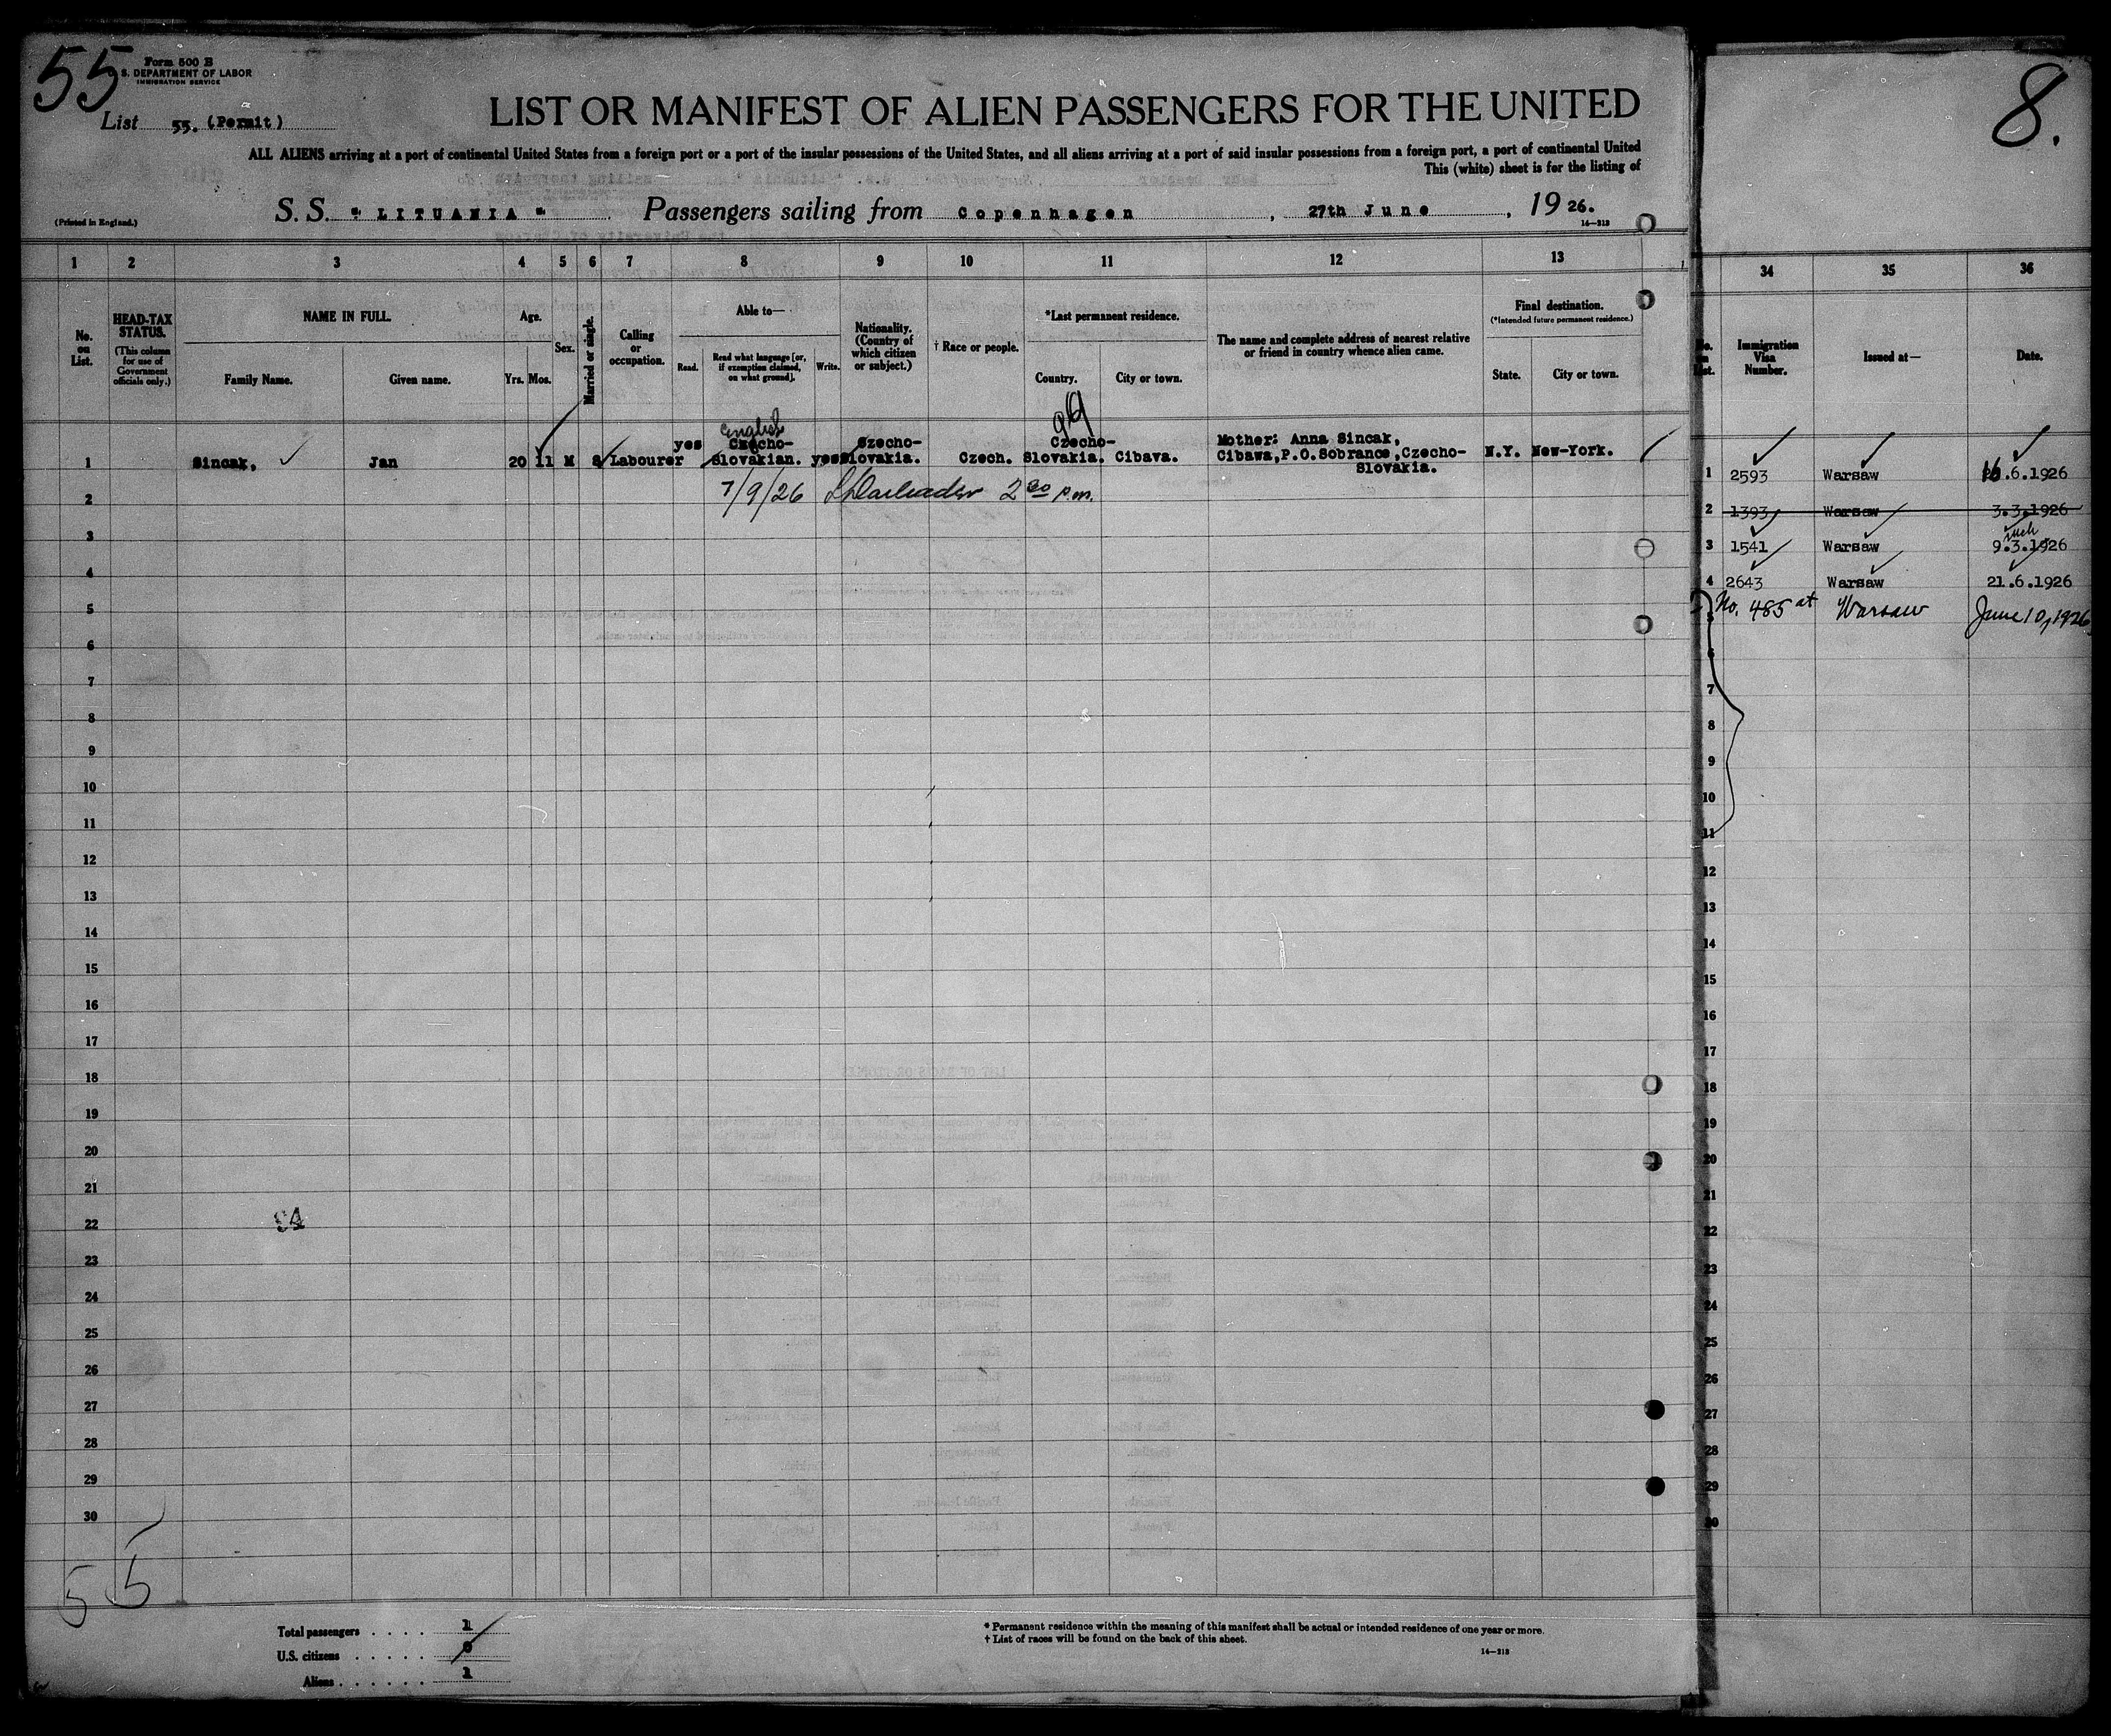 55
Form 500 B
S. DEPARTMENT OF LABOR
IMMIGRATION SERVICE
List 55. (Permit)
8.
LIST OR MANIFEST OF ALIEN PASSENGERS FOR THE UNITED
ALL ALIENS arriving at a port of continental United States from a foreign port or a port of the insular possessions of the United States, and all aliens arriving at a port of said insular possessions from a foreign port, a port of continental United
This (white) sheet is for the listing of
(Printed in England.)
S. S. " LITUANIA " Passengers sailing from Copenhagen, 27th June, 1926.
14—313
1 2 3 4 5 6 7 8 9 10 11 12 13
No. on List.
HEAD-TAX STATUS.
(This column for use of Government officials only.)
NAME IN FULL.
Family Name. Given name.
Age.
Yrs. Mos.
Sex.
Married or single.
Calling or occupation.
Able to—
Read. Read what language [or, if exemption claimed, on what ground]. Write.
Nationality. (Country of which citizen or subject.)
† Race or people.
*Last permanent residence.
Country. City or town.
The name and complete address of nearest relative or friend in country whence alien came.
Final destination.
(*Intended future permanent residence.)
State. City or town.
English
1 Sincak, Jan 20 11 M S Labourer yes Czecho-Slovakian. yes Czecho-Slovakia. Czech. Czecho-Slovakia. Cibava. Mother: Anna Sincak, Cibawa, P.O. Sobrance, Czecho-Slovakia. N.Y. New-York.
7/9/26 2 30 p.m.
2
3
4
5
6
7
8
9
10
11
12
13
14
15
16
17
18
19
20
21
22
23
24
25
26
27
28
29
30
55
Total passengers . . . . 1
U.S. citizens . . . . . 0
Aliens . . . . . . 1
* Permanent residence within the meaning of this manifest shall be actual or intended residence of one year or more.
† List of races will be found on the back of this sheet.
14—313
34 35 36
No. on List.
Immigration Visa Number.
Issued at—
Date.
1 2593 Warsaw 16.6.1926
2 1393 Warsaw 3.3.1926
3 1541 Warsaw 9.3.1926
4 2643 Warsaw 21.6.1926
5 No. 485 at Warsaw June 10, 1926
6
7
8
9
10
11
12
13
14
15
16
17
18
19
20
21
22
23
24
25
26
27
28
29
30